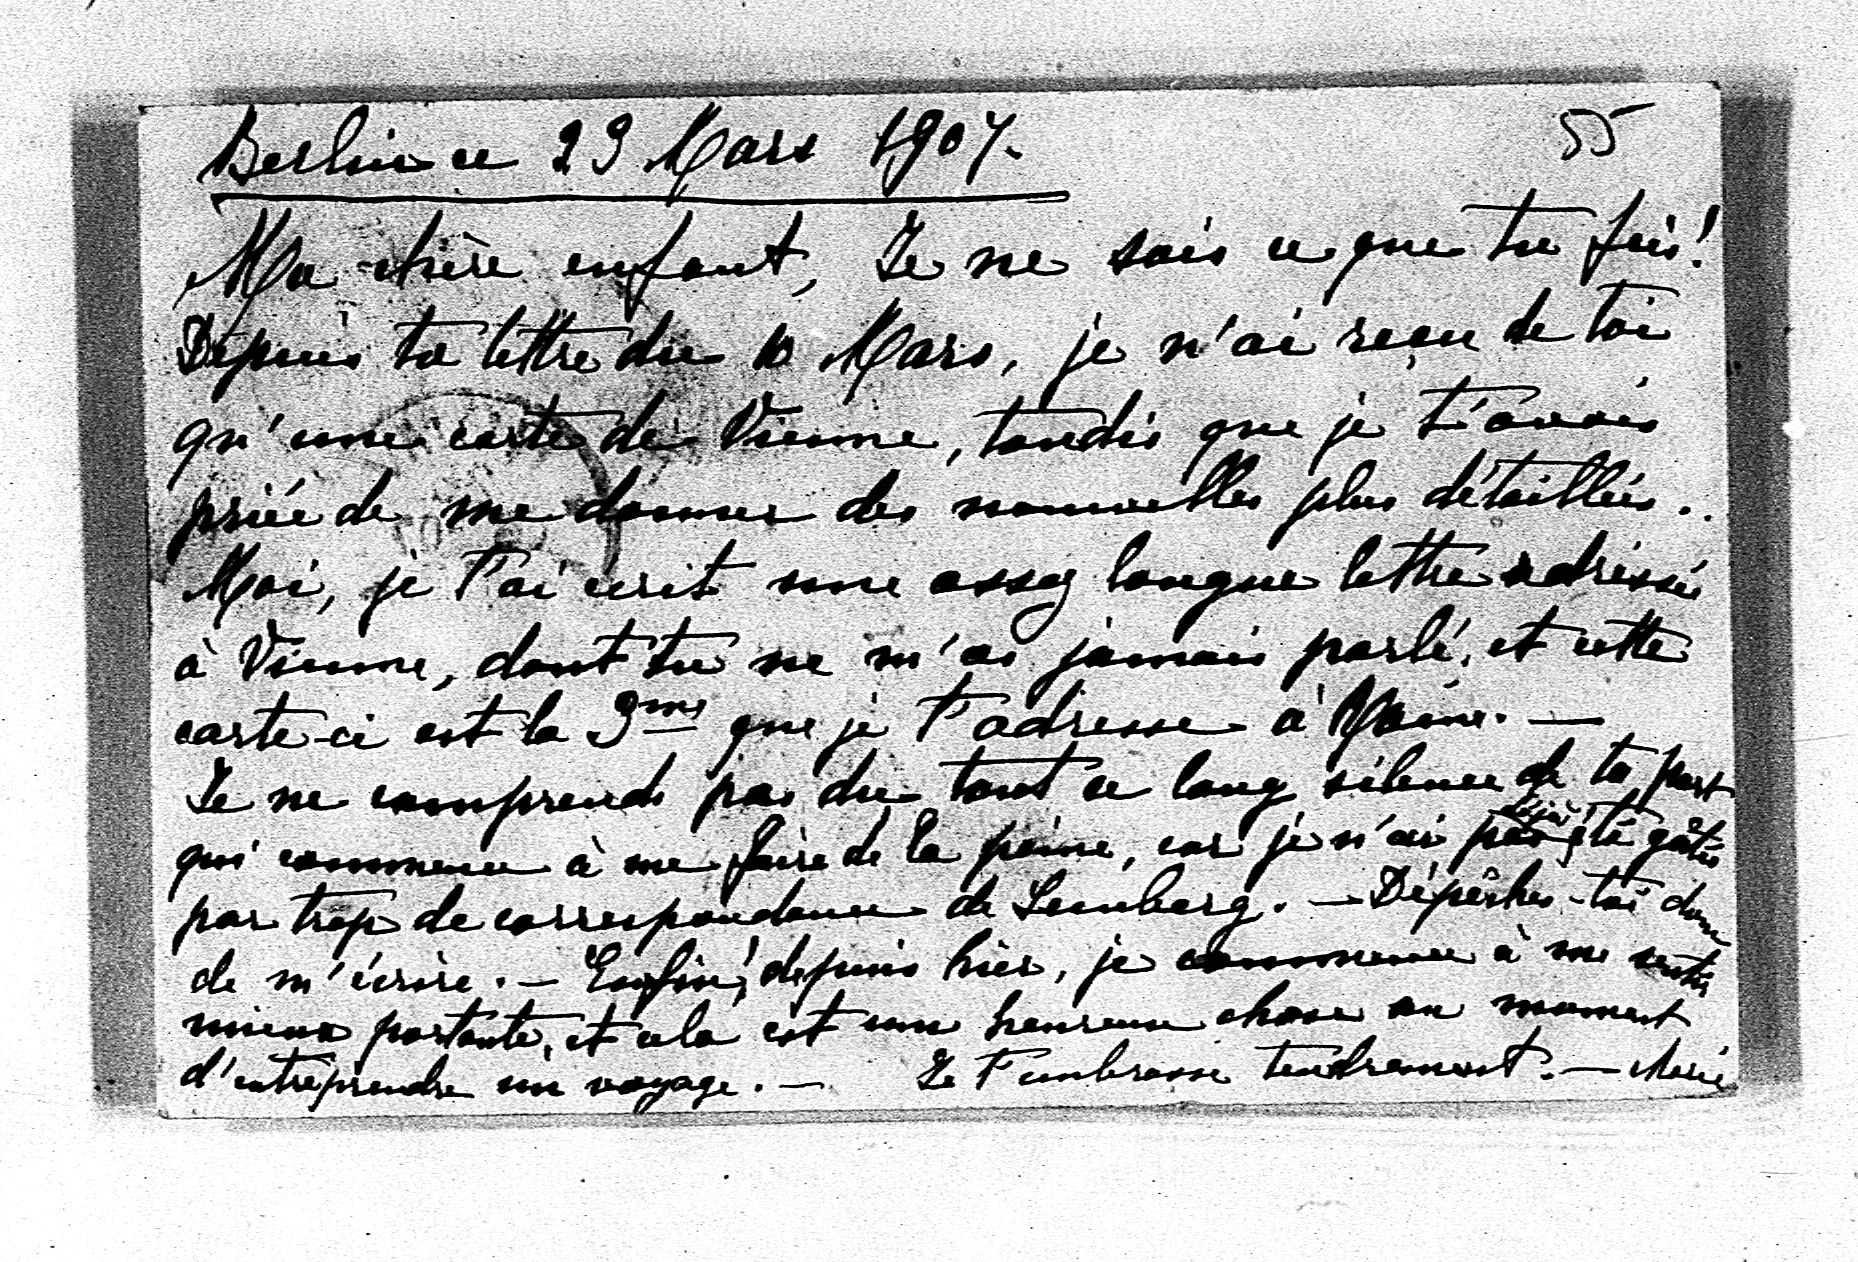 Berlin ce 23 Mars 1907.
55
Ma chère enfant, Je ne sais ce que tu fais!
Depuis ta lettre du 10 Mars, je n'ai reçu de toi
qu'une carte de Vienne, tandis que je t'avais
priée de me donner des nouvelles plus détaillées..
Moi, je t'ai écrit une assez longue lettre adressée
à Vienne, dont tu ne m'as jamais parlé, et cette
carte-ci est la 3me que je t'adresse à
Je ne comprends pas du tout ce long silence de ta part
qui commence à me faire de la peine, car je n'ai pas déjà été gâtée
par trop de correspondance de Lemberg. — Dépêches-toi donc
de m'écrire. — Enfin, depuis hier, je commence à me sentir
mieux portante, et cela est une heureuse chose au moment
d'entreprendre un voyage. — Je t'embrasse tendrement. — chérie